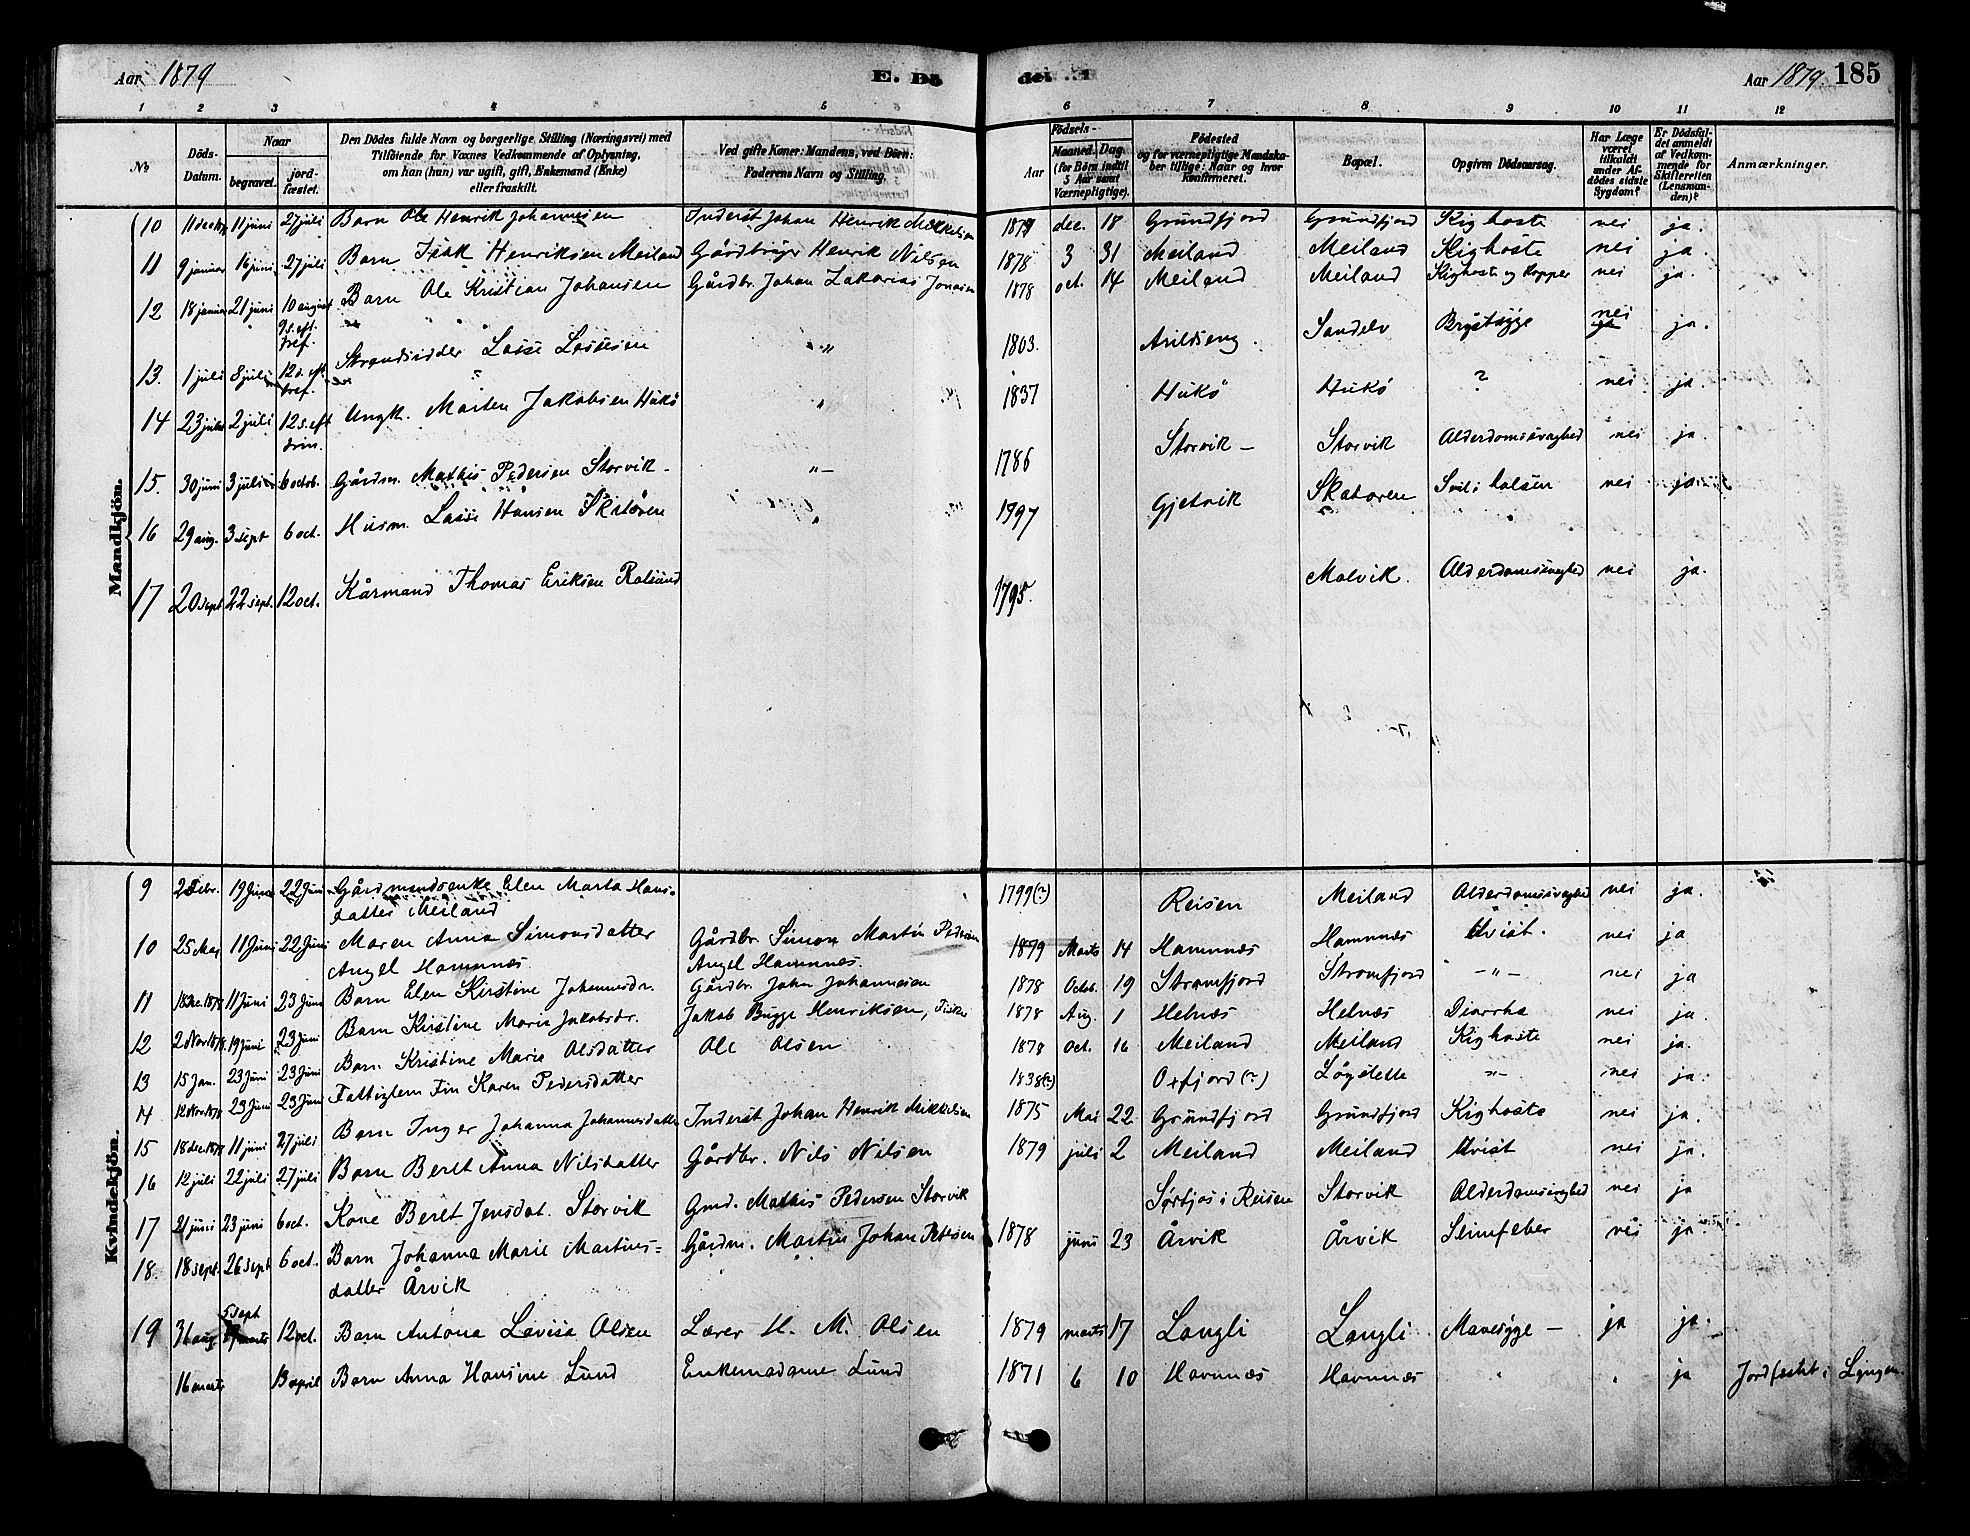 Aar 1879 E. Dö
de: 1 Aar 1879. 185
1 2 3 4 5 6 7 8 9 10 11 12
No
Döds-Datum.
Naar
begravet.
jord-fæstet.
Den Dödes fulde Navn og borgerlige Stilling (Næringsvei) med
Tilföiende for Voxnes Vedkommende af Oplysning,
om han (hun) var ugift, gift, Enkemand (Enke)
eller fraskilt.
Ved gifte Koner: Mandens, ved Börn:
Faderens Navn og Stilling.
Födsels-
Aar
Maaned. Dag.
(for Börn indtil
5 Aar samt
Værnepligtige).
Födested
og for værnepligtige Mandska-
ber tillige: Naar og hvor
Konfirmeret.
Bopæl.
Opgiven Dödsaarsag.
Har Læge
været
tilkaldt
under Af-
dödes sidste
Sygdom?
Er Dödsfal-
det anmeldt
af Vedkom-
mende for
Skifteretten
(Lensman-
den)?
Anmærkninger.
Mandkjön.
10 11 dec 11 juni 27 juli Barn Ole Henrik Johannesen Inderst Johan Henrik Mikkelsen 1879 dec. 18 Grundfjord Grundfjord Kighoste nei ja.
11 9 januar 16 juni 27 juli Barn Isak Henriksen Meiland Gårdbruger Henrik Nilsen 1878 3 31 Meiland Meiland Kighoste nei ja.
12 18 januar 21 juni 10 august Barn Ole Kristian Johansen Gårdbr. Johan Zakarias Jonasen 1878 oct. 14 Meiland Meiland Kighoste og Kopper nei ja.
9 s. eft. tref.
13. 1 juli 8 juli 12 s. eft. tref. Strandsidder Lasse Lassesen " 1803. Arildseng. Sandelv Brystsyge nei ja.
14 23 juli 2 juli 12 s. eft Ungk. Morten Jakobsen Hukö " 1837 Hukö Hukö ? nei ja.
15. 30 juni 3 juli 6 octob. Gårdm. Mathis Pedersen Storvik - "- 1786 Storvik - Storvik Alderdomssvaghed nei ja.
16 29 aug. 3 sept 6 oct. Husm. Lasse Hansen Skatören " 1797 Gjetvik Skatoren Svul i halsen nei ja
17 20 sept 22 sept. 12 oct. Kårmand Thomas Eriksen Rolsund 1795. Malvik. Alderdomssvaghed nei ja.
Kvindekjön.
9 Febr. 19 Juni 22 Juni Gårdmandsenke Elen Marta Hans-
datter Meiland 1799(?) Reisen Meiland Alderdomssvaghed nei ja.
10 25 Maj 11 Juni 22 Juni Maren Anna Simonsdatter Gårdbr. Simon Martin Pedersen 1879 Marts 14 Hamnnæs Hamnnæs Uvist. nei ja
Angel Hamnnæs Angel Hamnnæs.
11 18 Dec. 1878 11 Juni 23 Juni Barn Elen Kirstine Johannesdr. Gårdbr. John Johannesen 1878 Octob. 19 Strømfjord Strømfjord -"- nei ja
12 2 Nov. 1878 19 Juni 23 Juni Barn Kirstine Marie Jakobsdr. Jakob Bugge Henriksen, Fisker 1878 Aug. 1 Helnæs Helnæs Diarrhe nei ja.
13 15 Jan. 23 Juni 23 Juni Barn Kristine Marie Olsdatter Ole Olsen 1878 Oct. 16 Meiland Meiland Kighoste nei ja.
14 12 Nov. 1878 23 Juni 23 Juni Fattiglem Fin Karen Pedersdatter 1838(?) Oxfjord(?) Lögslette "- nei ja.
15 18 dec. 1878 11 juni 27 juli Barn Inger Johanna Johannesdatter Inderst Johan Henrik Mikkelsen 1875 Mai 22 Grundfjord Grundfjord Kighoste nei ja.
16 12 juli 22 juli 27 juli Barn Beret Anna Nilsdatter Gårdbr. Nils Nilsen 1879 juli 2 Meiland Meiland Uvist nei ja.
17 21 juni 23 juni 6 oct. Kone Beret Jensdat. Storvik Gmd. Mathis Pedersen Storvik Sørfjos i Reisen Storvik Alderdomssvaghed nei ja
18. 18 sept. 26 sept 6 oct. Barn Johanna Marie Martines=
datter Årvik Gårdm. Martin Johan Petersen 1878 juni 23 Årvik Årvik Slimfeber nei ja.
19 31 aug 5 sept 12 oct. Barn Antona Lovisa Olsen Lærer H. M. Olsen 1879 marts 17 Langli Langli Mavesyge - ja ja.
16 marts 13 april Barn Anna Hansine Lund Enkemadame Lund 1871 6 10 Havnnæs Havnnæs " " ja Jordfæstet i Lyngen.